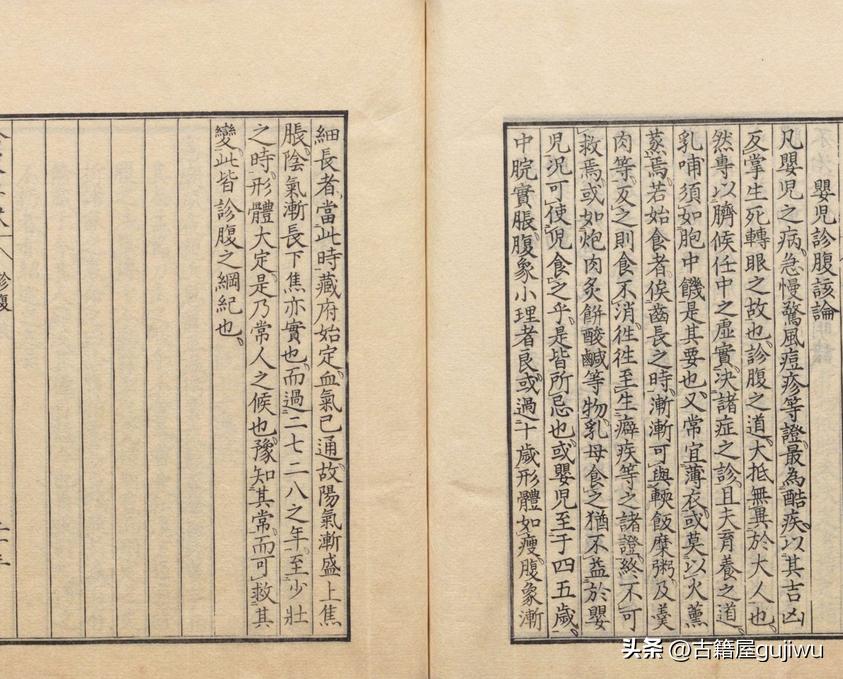 嬰兒診腹該論
凡嬰兒之病急慢驚風痘疹等證最為酷疾以其吉凶
反掌生死轉眼之故也診腹之道大抵無異於大人也
然專以臍候任中之虛實決諸症之診且夫育養之道
乳哺須如胞中饑是其要也又常宜薄衣或莫以火薰
蒸焉若始食者俟齒長之時漸漸可與輭飯糜粥及羹
肉等反之則食不消徃徃至生癖疾等之諸證終不可
救焉或如炮肉炙餅酸鹹等物乳母食之猶不益於嬰
兒況可使兒食之乎是皆所忌也或嬰兒至于四五歲
中脘實脹腹象小理者良或過十歲形體如瘦腹象漸
細長者當此時藏府始定血氣已通故陽氣漸盛上焦
脹陰氣漸長下焦亦實也而過二七二八之年至少壯
之時形體大定是乃常人之候也豫知其常而可救其
變此皆診腹之綱紀也
診腹
头条 @古籍屋gujiwu